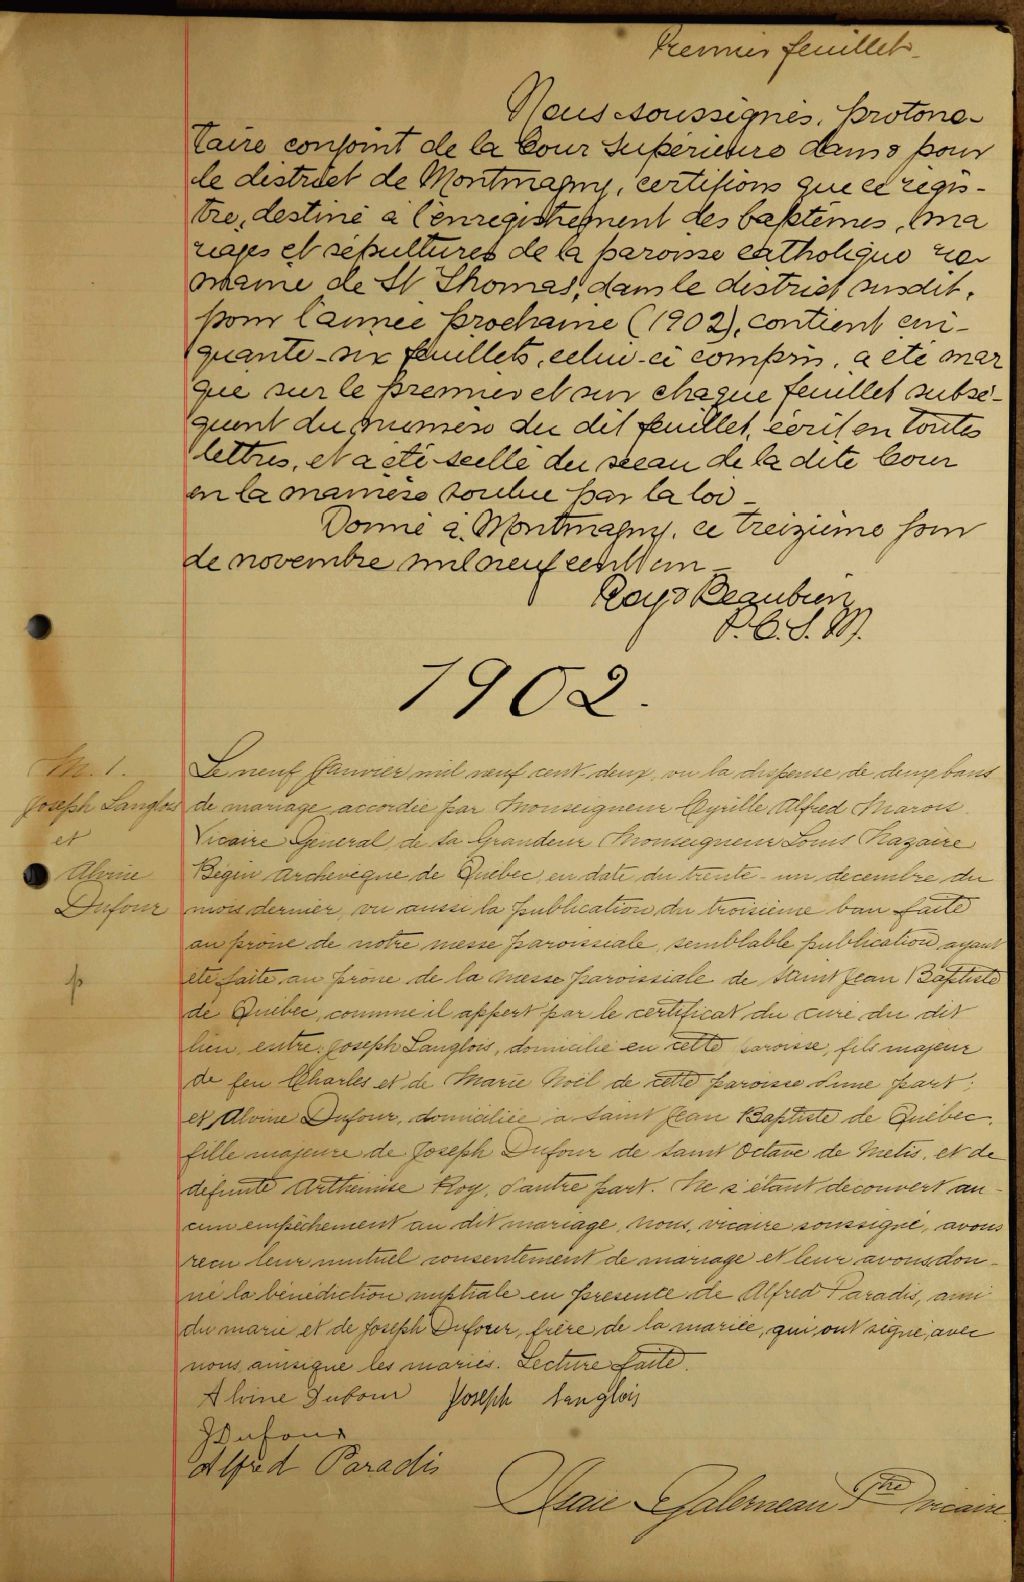 Premier feuillet
Nous soussignés, protono-
taire conjoint de la Cour Supérieure dans & pour
le district de Montmagny, certifions que ce régis-
tre, destiné à l'enregistrement des baptêmes, ma
riages et sépultures de la paroisse catholique ro-
maine de St Thomas, dans le district susdit,
pour l'année prochaine (1902), contient cin-
quante-six feuillets, celui-ci compris, a été mar
qué sur le premier et sur chaque feuillet subsé-
quent du numéro du dit feuillet, écrit en toutes
lettres, et a été scellé du sceau de la dite Cour
en la manière voulue par la loi -
Donné à Montmagny, ce treizième jour
de novembre mil neuf cent un -
Roy & Beaubien
P.C.S.M.
1902.
M. 1.
Joseph Langlois
et
Alvine
Dufour
p
Le neuf Janvier mil neuf cent-deux, vu la dispense de deux bans
de mariage accordée par Monseigneur Cyrille Alfred Marois
Vicaire Général de Sa Grandeur Monseigneur Louis Nazaire
Bégin Archevêque de Québec, en date du trente-un décembre du
mois dernier, vu aussi la publication du troisième ban faite
au prône de notre messe paroissiale, semblable publication ayant
été faite au prône de la messe paroissiale de Saint Jean Baptiste
de Québec, comme il appert par le certificat du curé du dit
lieu, entre Joseph Langlois, domicilié en cette paroisse, fils majeur
de feu Charles et de Marie Noël de cette paroisse d'une part;
et Alvine Dufour, domiciliée à Saint Jean Baptiste de Québec,
fille majeure de Joseph Dufour de Saint Octave de Metis, et de
défunte Arthémise Roy, d'autre part. Ne s'étant découvert au-
cun empêchement au dit mariage, nous, vicaire soussigné, avons
reçu leur mutuel consentement de mariage et leur avons don-
né la bénédiction nuptiale en présence de Alfred Paradis, ami
du marié et de Joseph Dufour, frère de la mariée, qui ont signé, avec
nous, ainsi que les mariés. Lecture faite.
Alvine Dufour Joseph Langlois
J Dufour
Alfred Paradis
Isaïe Galerneau Ptre vicaire